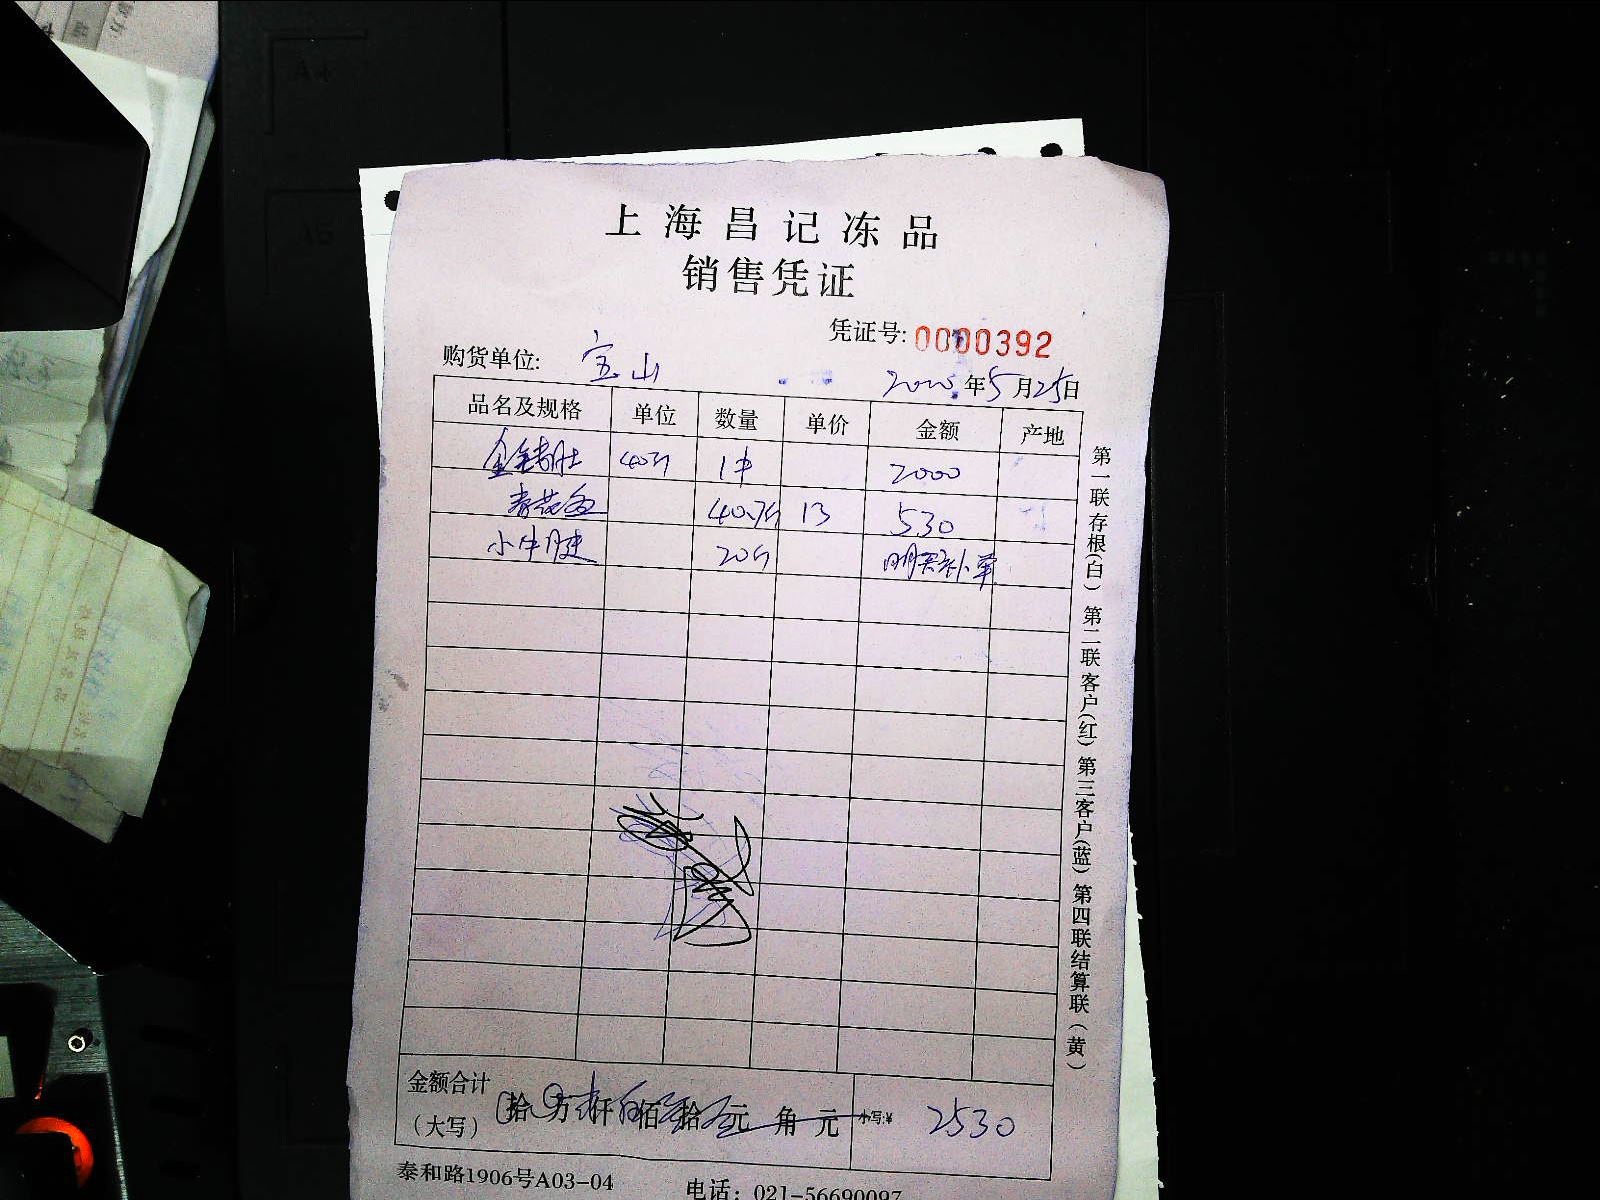 上海昌记冻品
销售凭证
凭证号: 0000392
购货单位: 宝山
年5月25日
品名及规格 单位 数量 单价 金额 产地
金钱肚 40斤 1件 2000
青花鱼 13 530
小牛腱 20斤 明天补单
金额合计
(大写) 拾 万 仟 佰 拾 元 角 元 小写:¥ 2530
泰和路1906号A03-04 电话: 021-56690097
第一联存根(白) 第二联客户(红) 第三客户(蓝) 第四联结算联(黄)